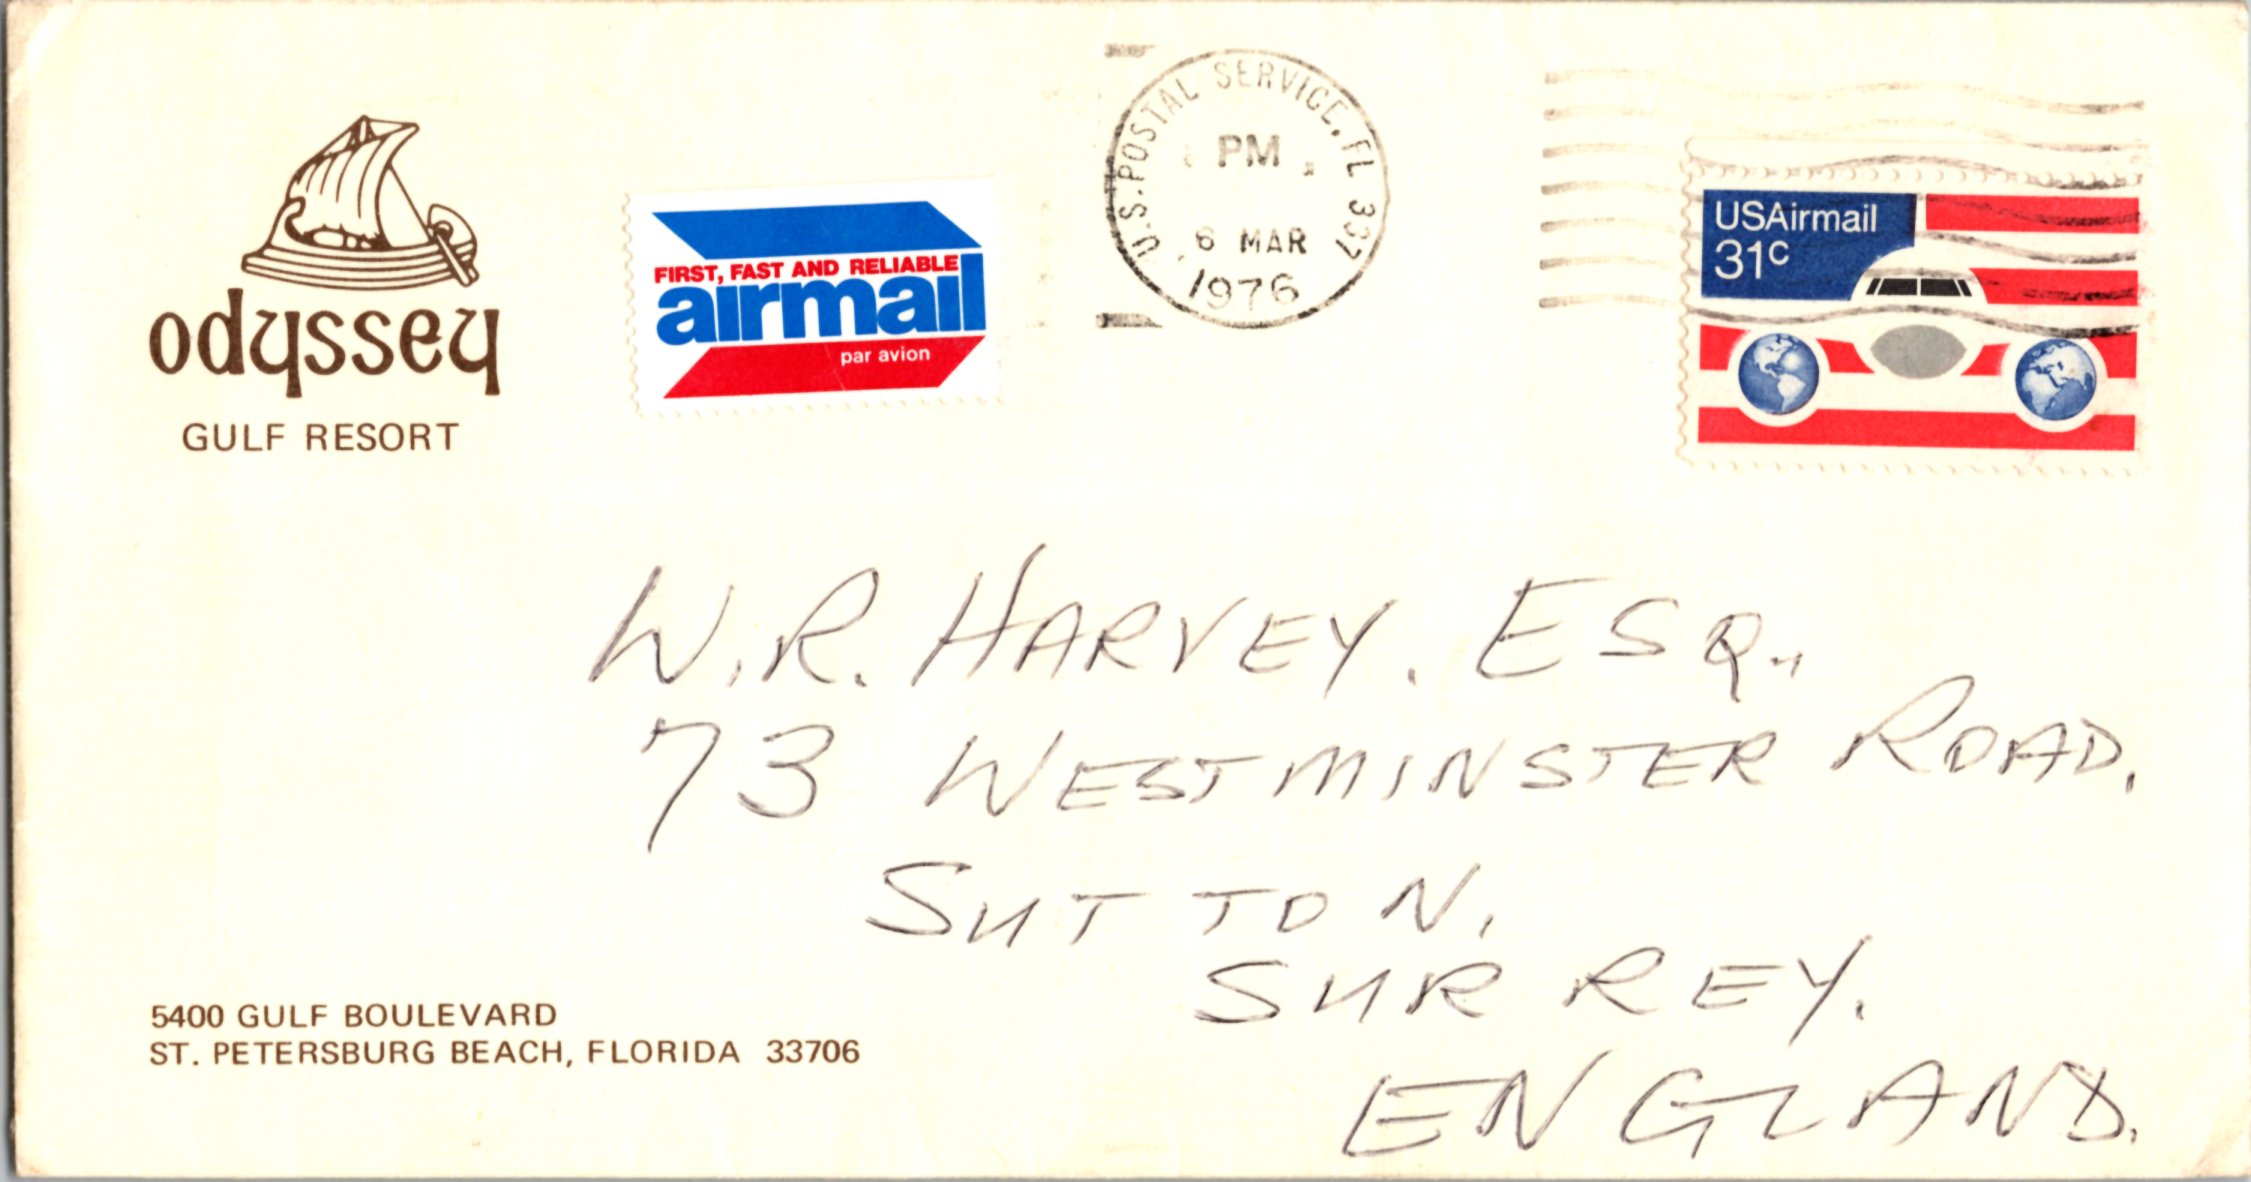 odyssey
GULF RESORT
FIRST, FAST AND RELIABLE
airmail
par avion
U.S. POSTAL SERVICE, FL 337
PM
6 MAR
1976
USAirmail
31c
W. R. HARVEY. ESQ.,
73 WESTMINSTER ROAD,
SUTTON,
SURREY.
ENGLAND.
5400 GULF BOULEVARD
ST. PETERSBURG BEACH, FLORIDA 33706